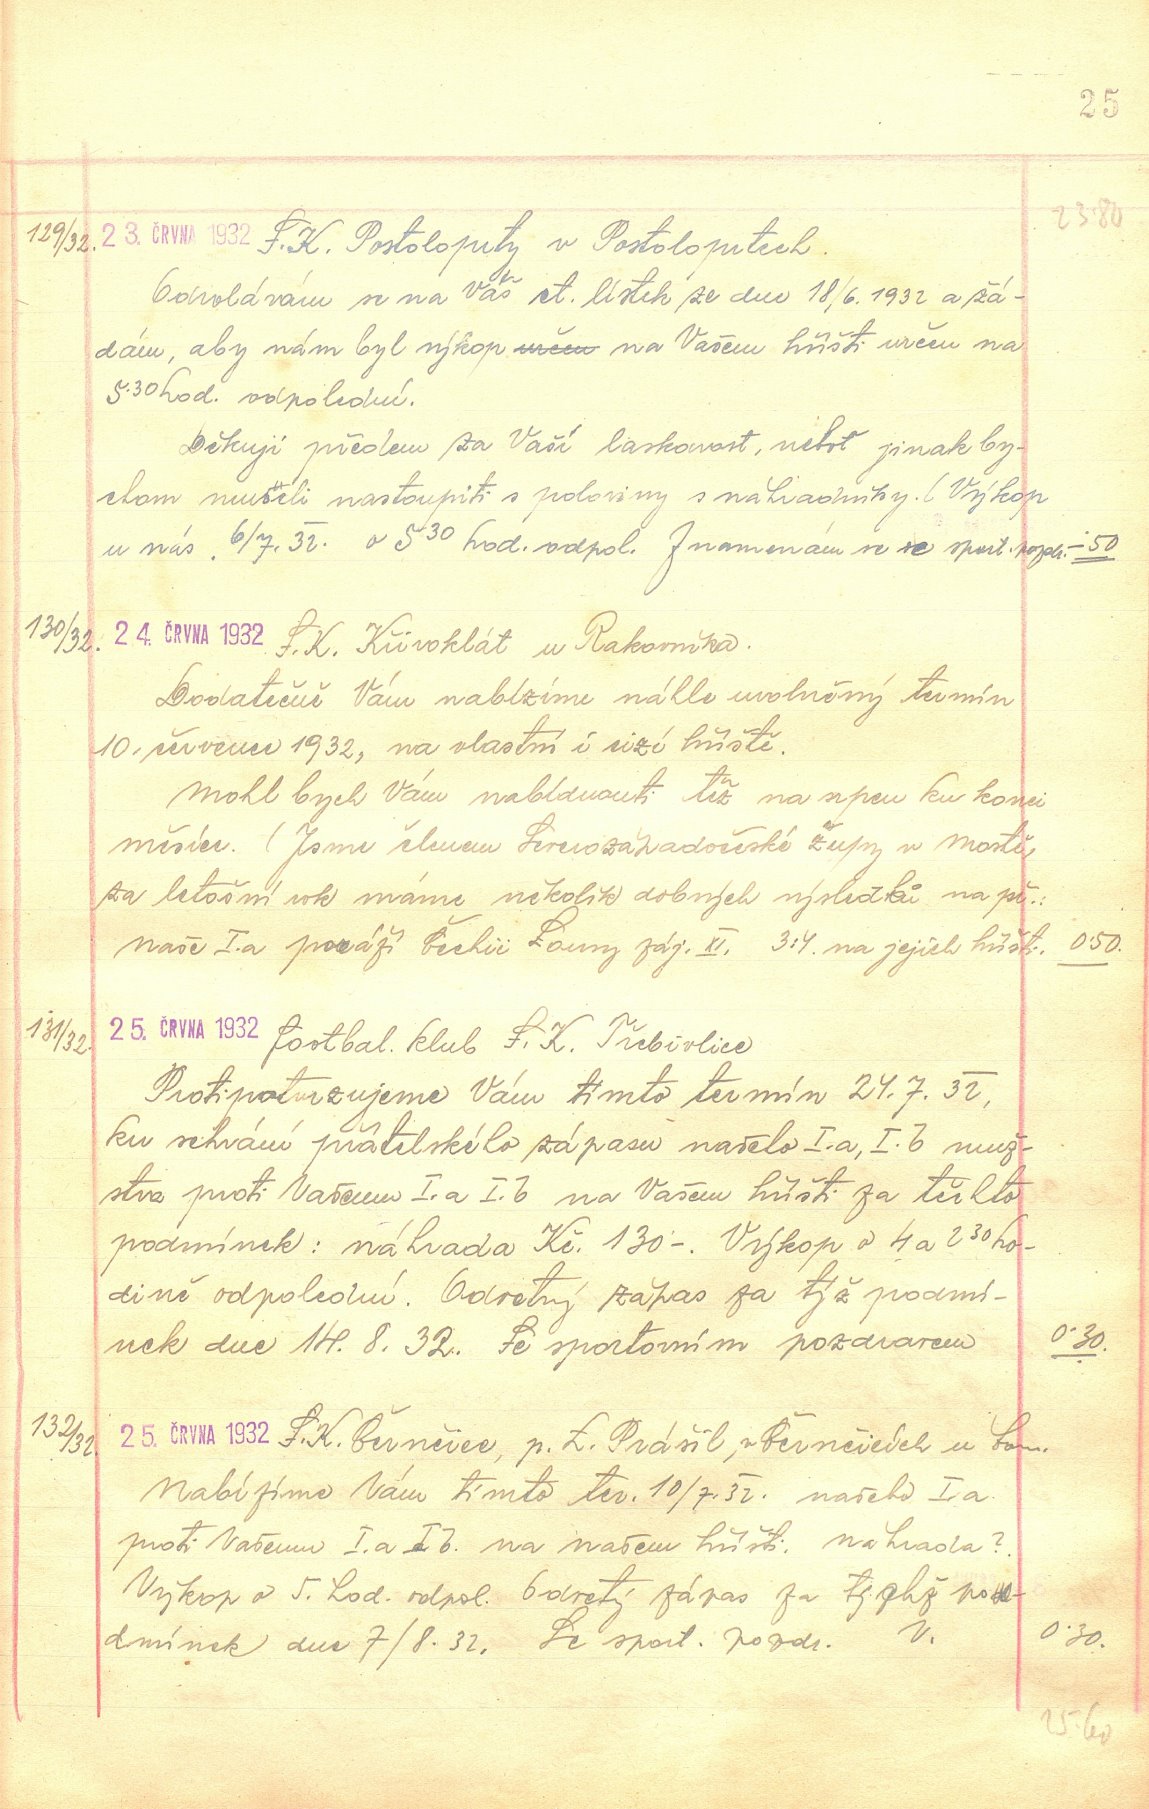 25
23·80
129/32. 23. ČRVNA 1932 S.K. Postoloprty v Postoloprtech.
Odvolávám se na Váš ct. lístek ze dne 18/6. 1932 a žá-
dám, aby nám byl výkop určen na Vašem hřišti určen na
5·30 hod. odpolední.
Děkuji předem za Vaší laskavost, neboť jinak by-
chom museli nastoupiti s poloviny s náhradníky. (Výkop
u nás 6/7. 32. o 5 30 hod. odpol. Znamenám se se sport. pozdr. -·50
130/32. 24. ČRVNA 1932 S.K. Křivoklát u Rakovníka.
Dodatečně Vám nabízíme náhle uvolněný termín
10. července 1932, na vlastní i cizí hřiště.
Mohl bych Vám nabídnouti též na srpen ku konci
měsíce. (Jsme členem Severozápadočeské župy v Mostě,
za letošní rok máme několik dobrých výsledků na př.:
naše I.a poráží Čechii Louny záj. XI. 3:4. na jejich hřišti. 0·50.
131/32. 25. ČRVNA 1932 Footbal. klub S.K. Třebivlice
Protipotvrzujeme Vám tímto termín 24. 7. 32,
ku sehrání přátelského zápasu našeho I.a, I.b muž-
stva proti Vašemu I. a I.b na Vašem hřišti za těchto
podmínek: náhrada Kč. 130·-. Výkop o 4 a 2 30 ho-
dině odpolední. Odvetný zápas za týž podmí-
nek dne 14. 8. 32. Se sportovním pozdravem 0·30.
132/32 25. ČRVNA 1932 S.K. Černčice, p. L. Prášil, v Černčicích u Loun.
Nabízíme Vám tímto ter. 10/7. 32. našeho I.a
proti Vašemu I. a I b. na našem hřišti. náhrada?.
Výkop o 5. hod. odpol. Odvetý zápas za týchž po-
dmínek dne 7/8. 32. Se sport. pozdr. V. 0·30.
25·60